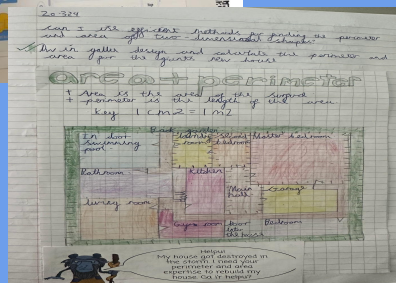 20-324
Can I use efficient methods for finding the perimeter
and area of two-dimensional shapes?
design and calculate the perimeter and
area for the new house
area + perimeter
+ Area is the area of the
+ perimeter is the length of the area
Key 1cm2 = 1m2
In door swimming pool
second bedroom
Master bedroom
Bathroom
Kitchen
Main hall
Garage
living room
Gym room
Door into the house
Bedroom
Help!
My house got destroyed in
the storm I need your
perimeter and area
expertise to rebuild my
house